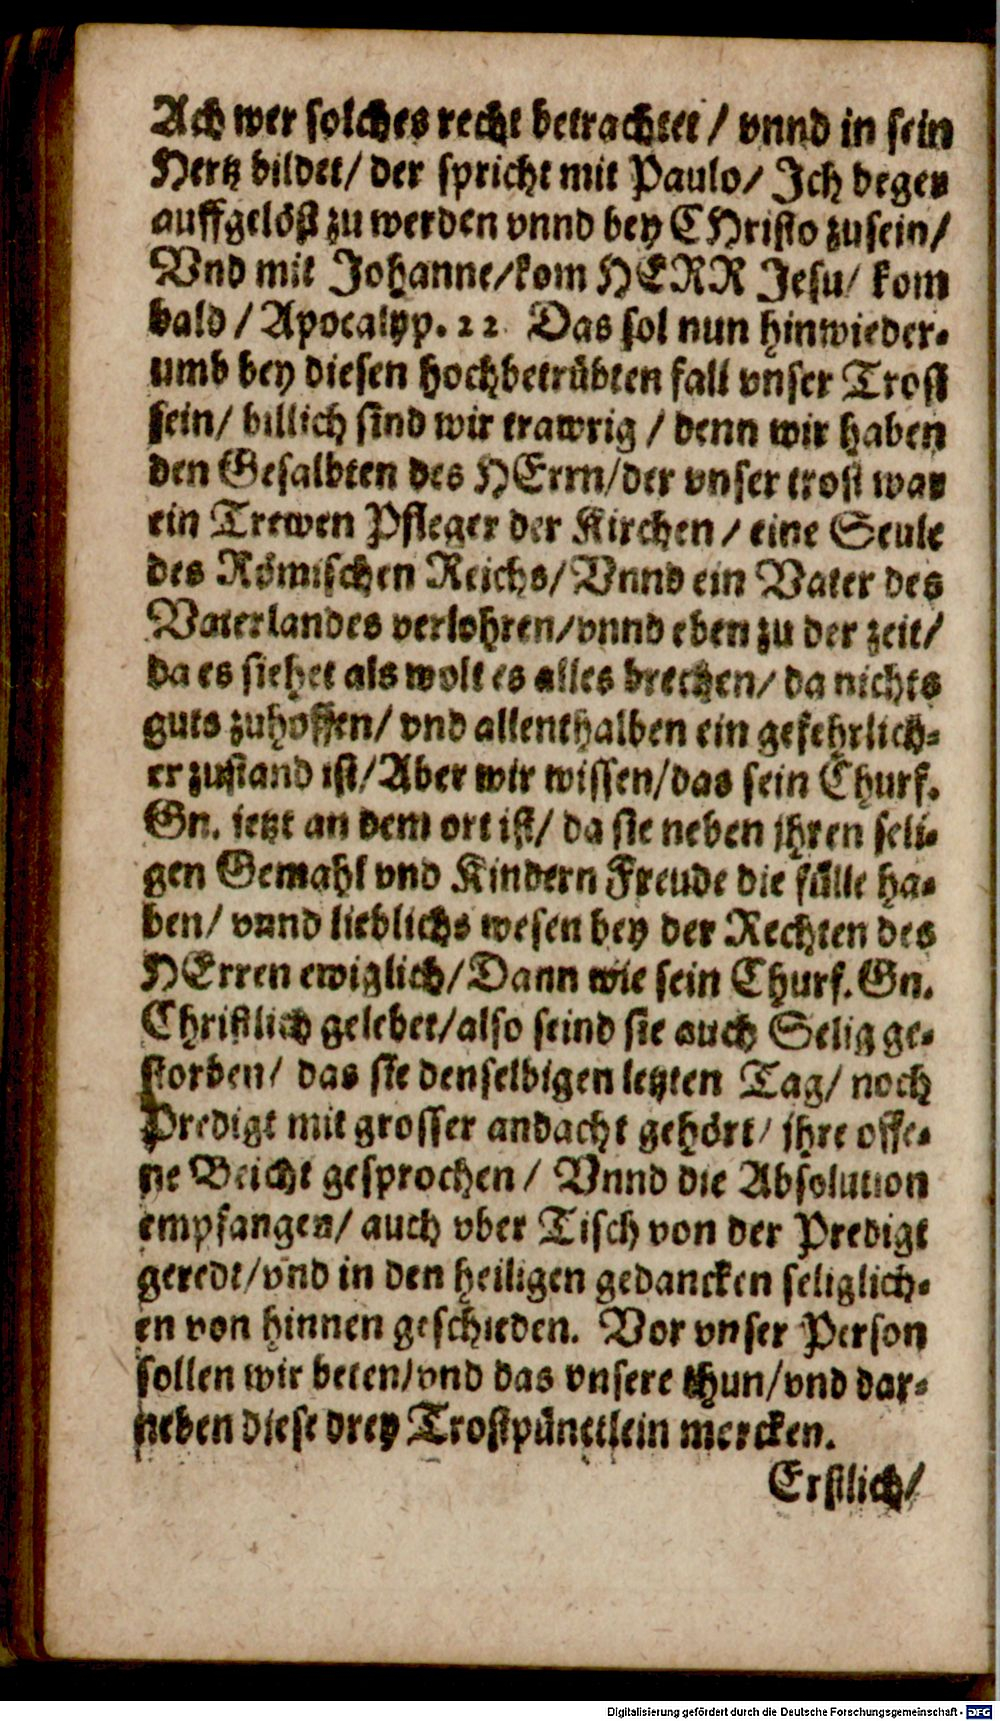 Ach wer solches recht betrachtet / vnnd in sein
Hertz bildet / der spricht mit Paulo / Ich beger
auffgelöst zu werden vnnd bey CHristo zusein /
Vnd mit Johanne / kom HERR Jesu / kom
bald / Apocalyp. 22. Das sol nun hinwieder-
umb bey diesen hochbetrübten fall vnser Trost
sein / billich sind wir trawrig / denn wir haben
den Gesalbten des HErrn / der vnser trost war
ein Trewen Pfleger der Kirchen / eine Seule
des Römischen Reichs / Vnnd ein Vater des
Vaterlandes verlohren / vnnd eben zu der zeit /
da es siehet als wolt es alles brechen / da nichts
guts zuhoffen / vnd allenthalben ein gefehrlich-
er zustand ist / Aber wir wissen / das sein Churf.
Gn. jetzt an dem ort ist / da sie neben jhren seli-
gen Gemahl vnd Kindern Freude die fülle ha-
ben / vnnd lieblichs wesen bey der Rechten des
HErren ewiglich / Dann wie sein Churf. Gn.
Christlich gelebet / also seind sie auch Selig ge-
storben / das sie denselbigen letzten Tag / noch
Predigt mit grosser andacht gehört / jhre offe-
ne Beicht gesprochen / Vnnd die Absolution
empfangen / auch vber Tisch von der Predigt
geredt / vnd in den heiligen gedancken seliglich-
en von hinnen geschieden. Vor vnser Person
sollen wir beten / vnd das vnsere thun / vnd dar-
neben diese drey Trostpünctlein mercken.
Erstlich /
Digitalisierung gefördert durch die Deutsche Forschungsgemeinschaft - DFG